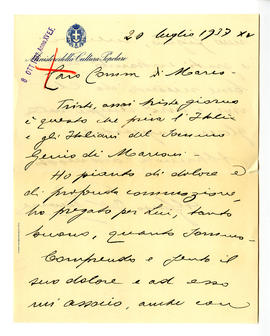 20 luglio 1937 XV
8 OTT. 1937 Anno XV E.F.
Ministero della Cultura Popolare
Caro Comm. Di Marco -
Triste, assai triste giorno
è questo che priva l'Italia
e gli Italiani del Sommo
Genio di Marconi.
Ho pianto di dolore e
di profonda commozione,
ho pregato per Lui, tanto
buono, quanto Sommo.
Comprendo e sento il
suo dolore e ad esso
mi associo, anche con